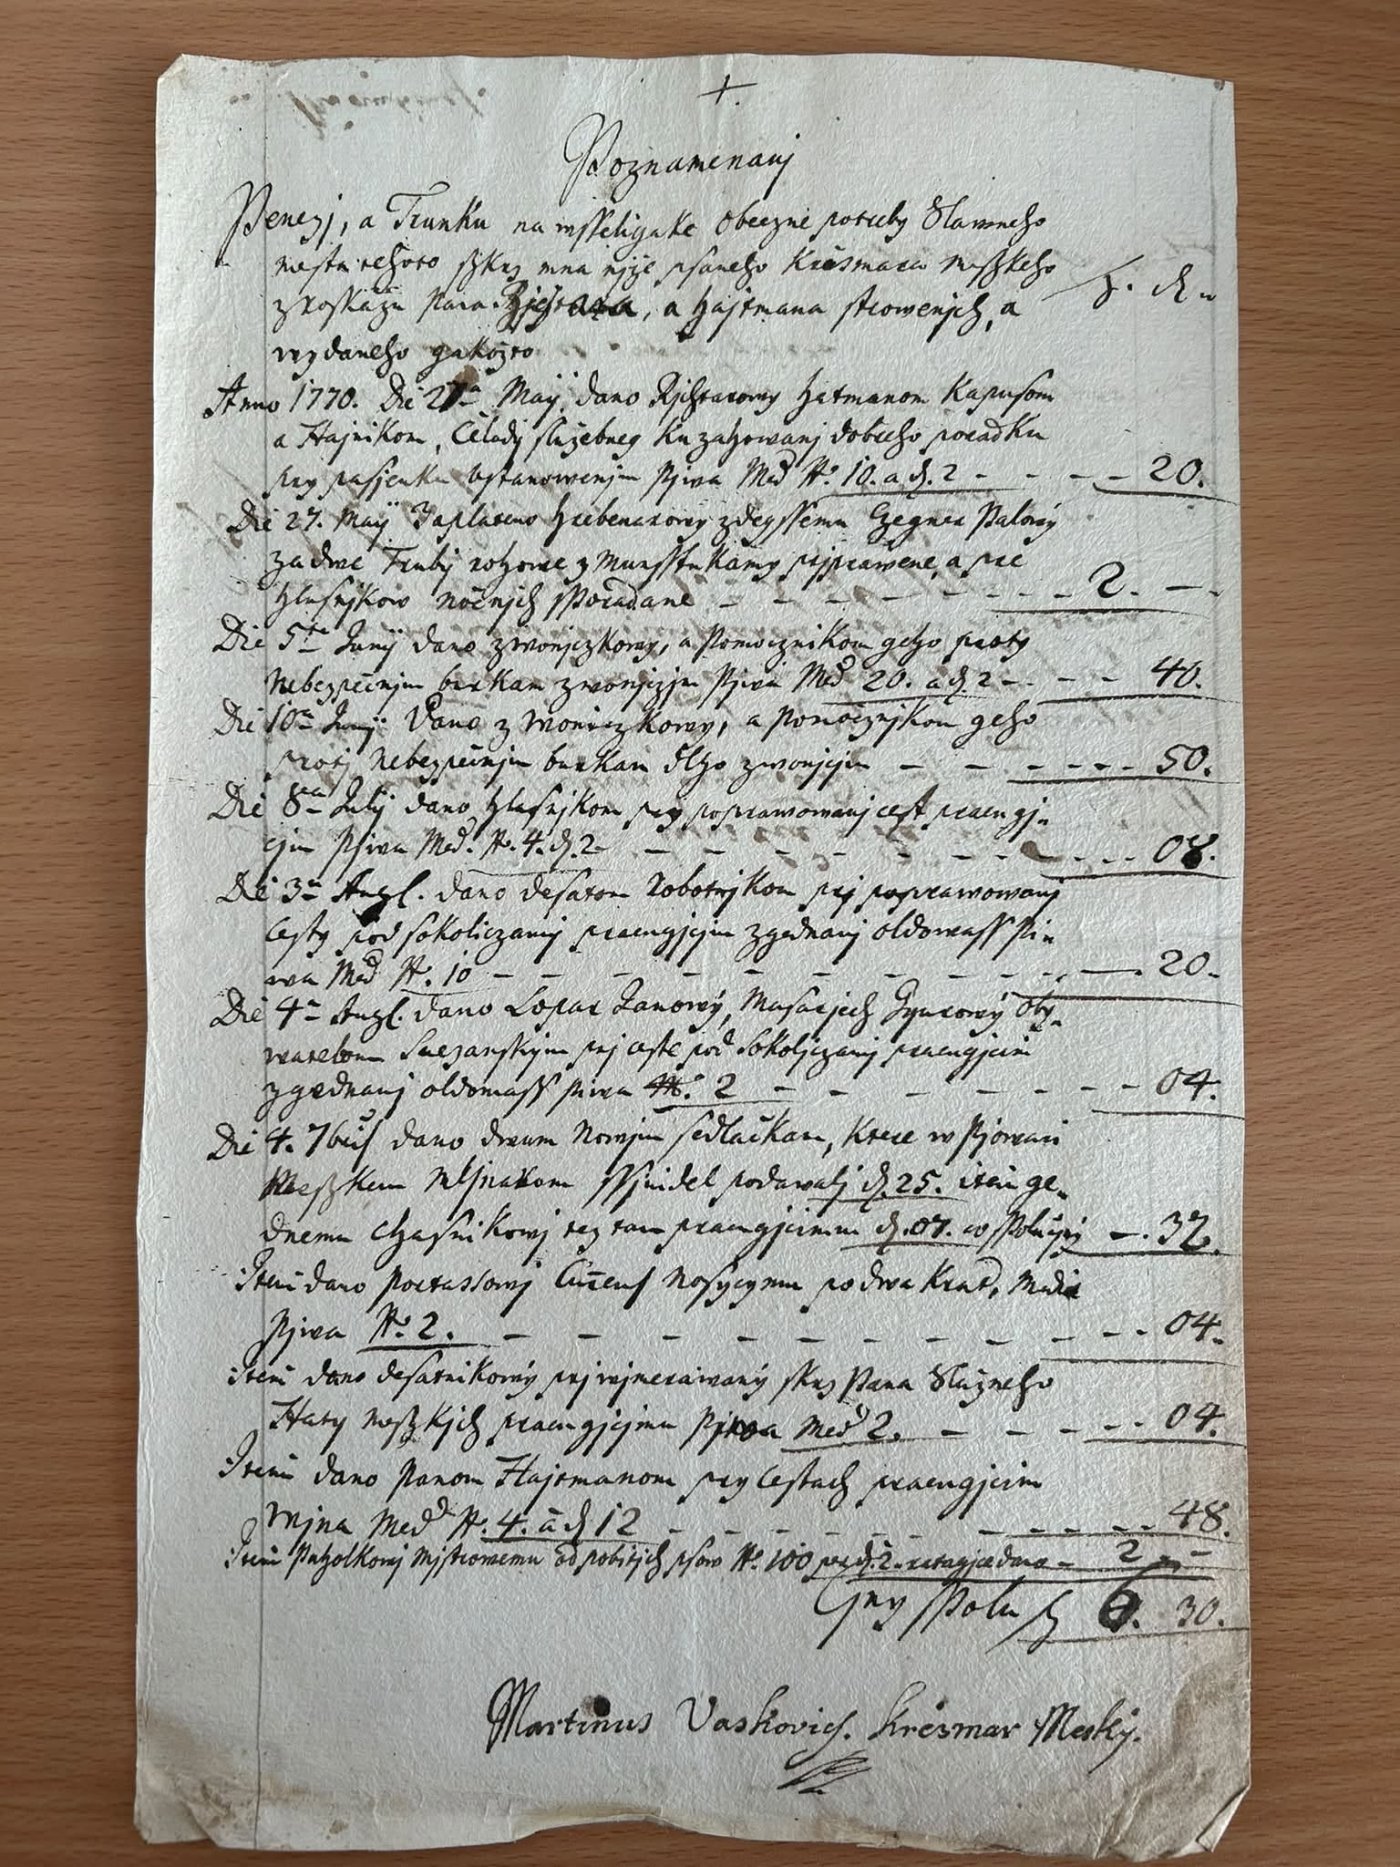 +.
Poznamenanj
Penezj, a Trunku na wsseligake Obeczne potreby Slawneho
mesta tohoto skrz mna nyze psaneho Kresmara Meszkeho
z roskazu Pana Rjchtara, a Hajtmana strowenich, a f. d.
wydaneho gakožto
Anno 1770. Die 27a Maij. dano Rjchtarowy Hatmanom Kapusom
a Hajnikom, Čeladj služebneg ku zahowanj dobreho poradku
pry pasjenku Ustanowenjm Pjwa Med No. 10. a d. 2 - - - - 20.
Die 27. Maij Zaplateno Hrebenarowy zdegssemu Czegner Palowy
za dwe Trubj rohowe z Munsstukamy prjprawene, a pre
Hlasnjkow nočnjch Sporadane - - - - - - - 2. - -
Die 5ta Junij dano zwonjczkowy, a Pomocznikom geho proty
Nebezpečnjm burkam zwonjczjm Pjwa Med 20. a d. 2 - - - 40.
Die 10a Junij Dano zwoniczkowy, a Pomocznjkom geho
protj Nebezpečnjm burkam dlho zwonjcjm - - - - - - 50.
Die 8va Julij dano Hlasnjkom pry poprawowanj cest pracugj-
cjm Pjwa Med. No. 4. d. 2 - - - - - - - - 08.
Die 3a Augl. dano desatom Robotnjkom prj poprawowanj
Cesty pod sokoliczamj pracugjcjm z gednanj oldomass Pi-
wa Med No. 10 - - - - - - - - - 20.
Die 4a Augl. dano Lopar Janowy, Masarjech Gyurowy Oby-
watelom Suczanskym prj ceste pod Sokoljczamj pracugjcim
z gednanj oldomass piwa No. 2 - - - - - - 04.
Die 4. 7bris dano dwum Nowym sedlačkam, Ktere w Pjwowari
Meszkem Mljnarom Ssjndel podawalj d. 25. item ge-
dnemu Chasnikowj tez tam pracugjcimu d. 07. w Spoločnj - . 32.
Item dano Portassowj Curens Nosycymu po dwa Krat, Media
Pjwa No. 2. - - - - - - - - - - - 04.
Item dano desatnikowy prj wymerawany skrz Pana Služneho
Haty Meszkjch pracugjcjmu Pjwa Med 2. - - - - - 04.
Item dano Panom Hajtmanom pry Cestach pracugjcim
Wjna Med No. 4. a d 12 - - - - - - - - 48.
Item Paholkowj Mistrowemu od pobitjch psow No. 100 per d. 2. dano - 2 - -
Cjny Spolu f 6. 30.
Martinus Vaskovich. Kresmar Meskj.